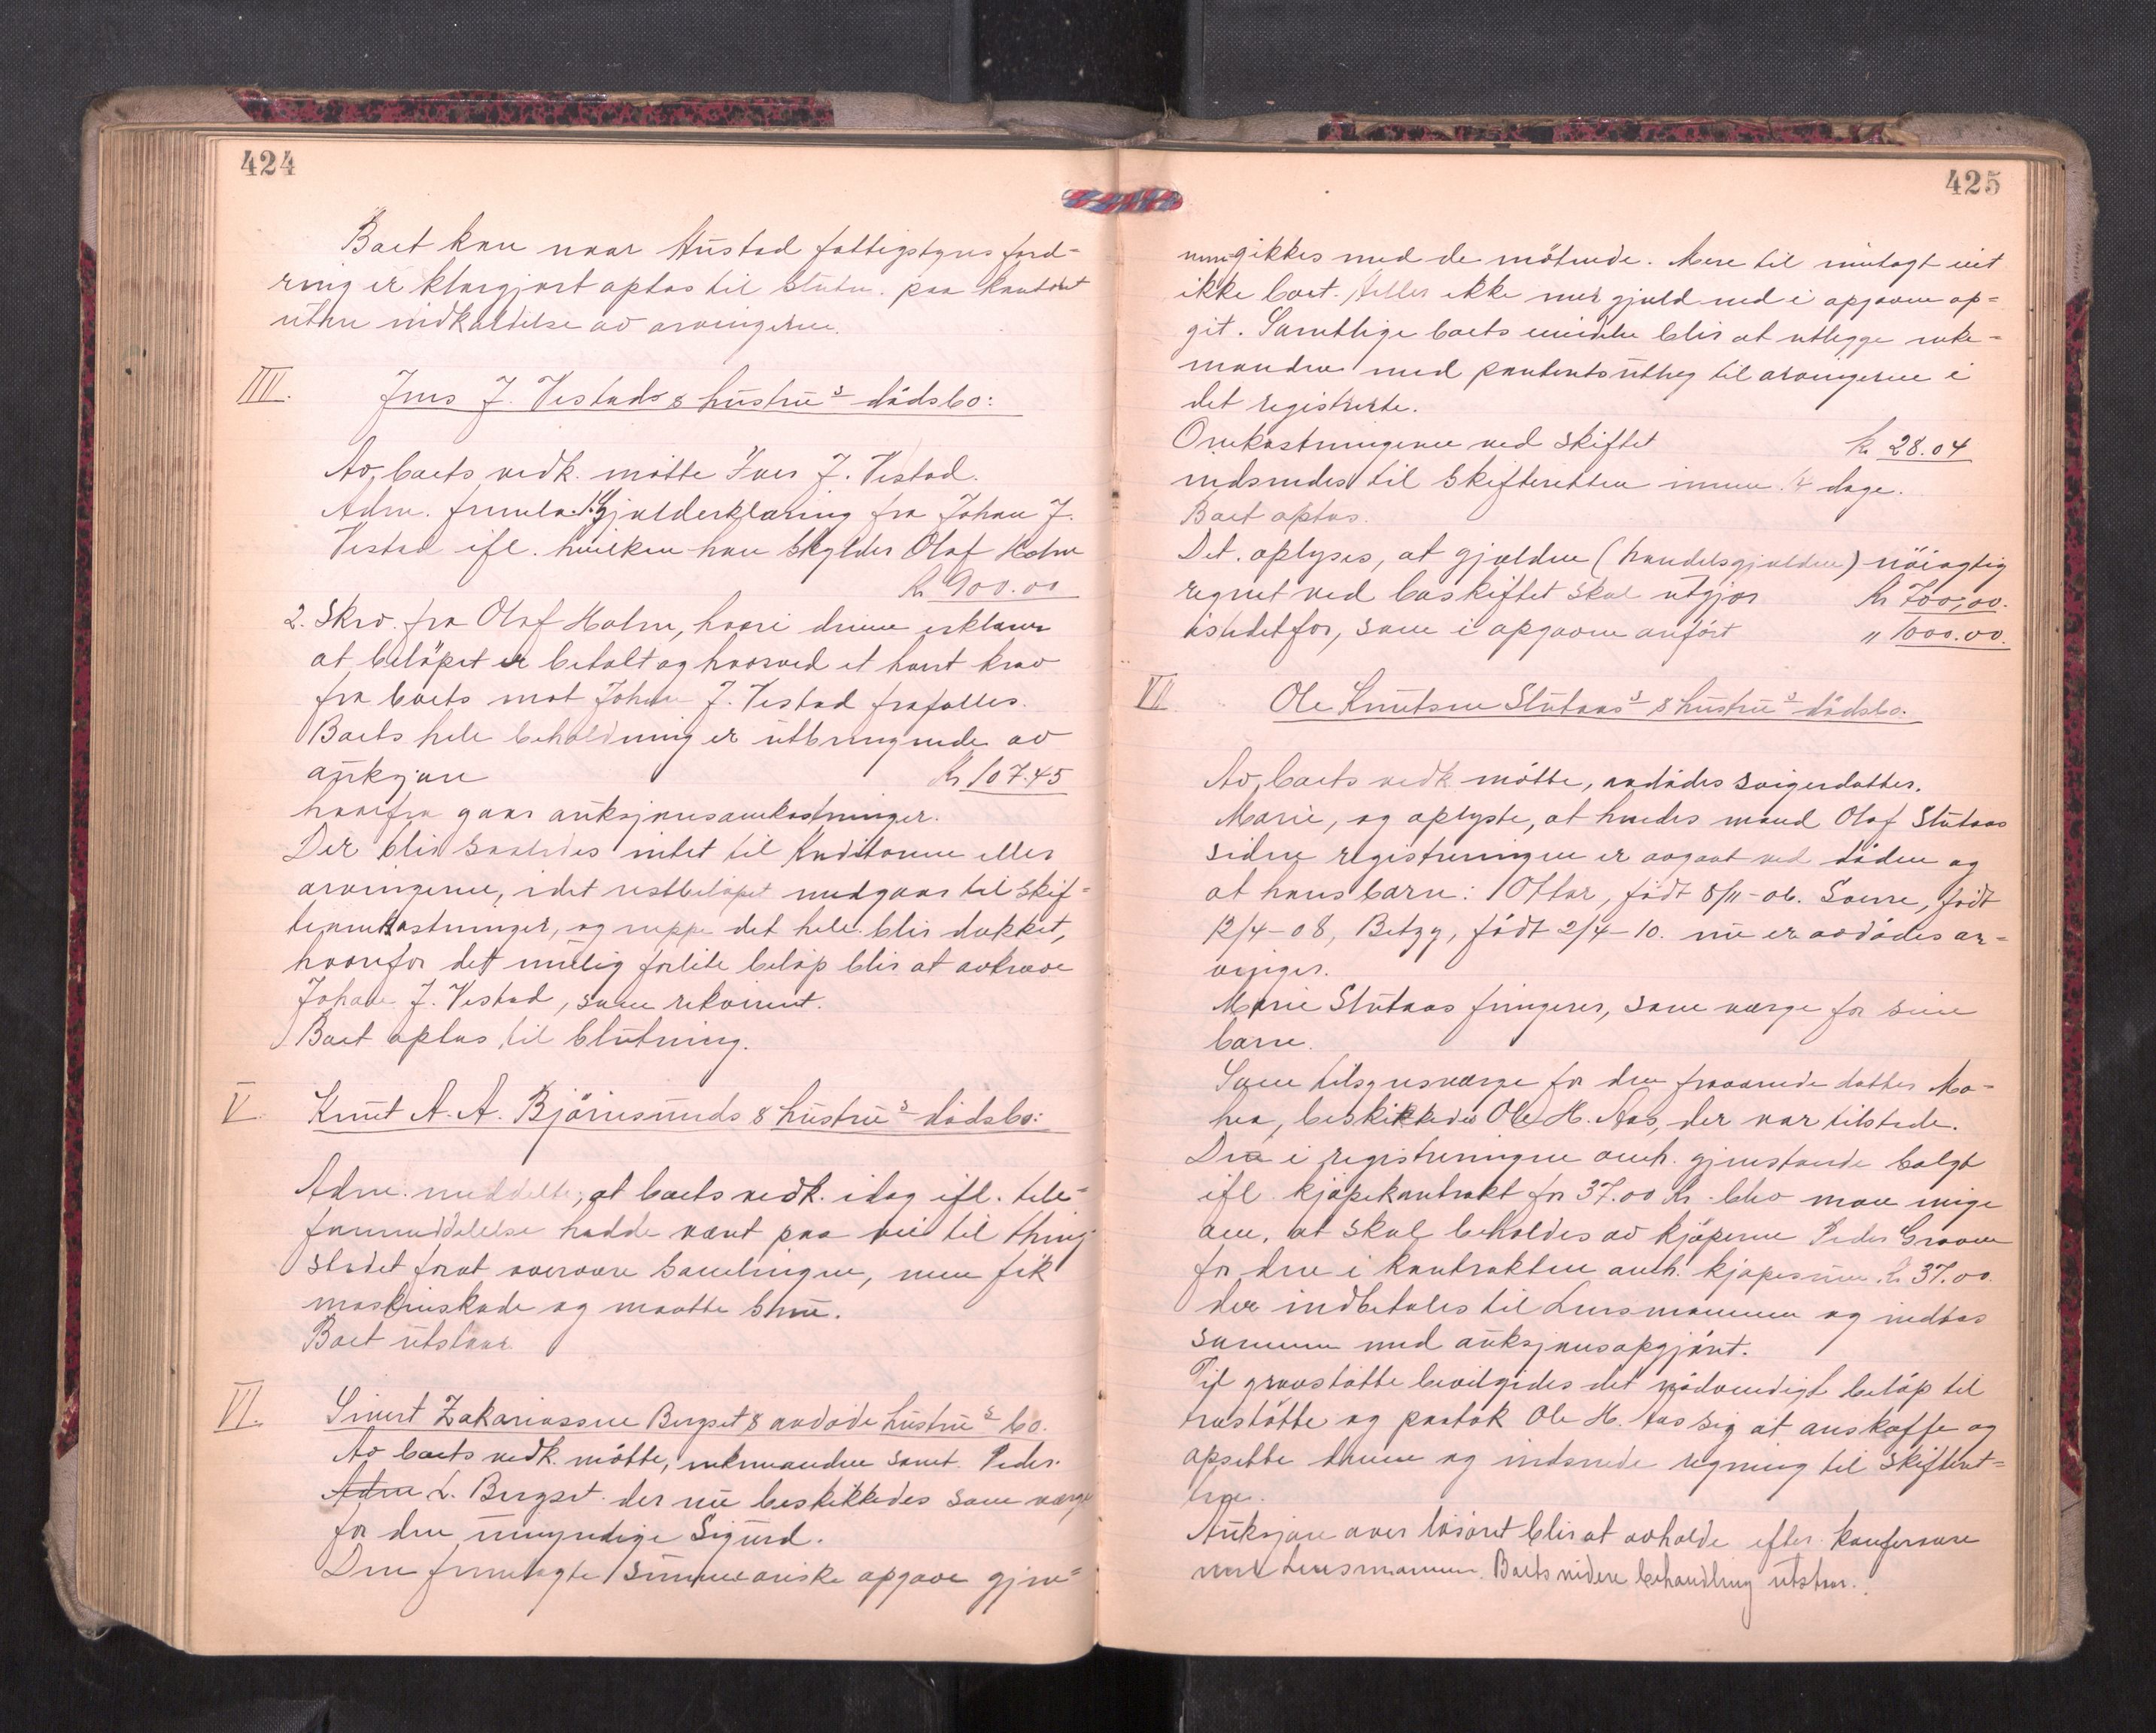 424
Boet kan naar Austad fattigstyres ford-
ring er klargjort optas til slutn. paa kontoret
uten indkaldelse av arvingerne.
IIII. Jens J. Vestads & hustru's dødsbo:
Av boets vedk. møtte Iver J. Vestad.
Adm. fremla 1. Gjelderklæring fra Johan J.
Vestad ifl. hvilken han skylder Olaf Holm
Kr 900.00
2. Skrv. fra Olaf Holm, hvori denne erklærer
at beløpet er betalt og hvorved et hvert krav
fra boets mot Johan J. Vestad frafalles.
Boets hele beholdning er utbringende av
auksjon Kr 107.45
hvorfra gaar auksjonsomkostninger.
Der blir saaledes intet til kreditorene eller
arvingerne, idet restbeløpet medgaar til skif-
teomkostninger, og neppe det hele blir dækket,
hvorfor det mulig forlite beløp blir at avkræve
Johan J. Vestad, som rekvirent.
Boet optas til slutning.
V. Knut A. A. Bjørnsunds & hustru's dødsbo:
Adm. meddelte, at boets vedk. idag ifl. tele-
fonmeddelelse hadde været paa vei til thing-
stedet forat overvære samlingen, men fik
maskinskade og maatte snu.
Boet utstaar
VI. Sivert Zakariassen Bergset & avdøde hustru's bo.
Av boets vedk. møtte, enkemanden samt Peder
Adm L. Bergset der nu beskikkedes som værge
for den umyndige Sigurd.
Den fremlagte summariske opgave gjen-
425
nemgikkes med de møtende. Mere til indtægt eiet
ikke boet. Heller ikke mer gjeld ned i opgaven op-
git. Samtlige boets midler blir at utlegge enke-
manden med panterets utlæg til arvingerne i
det registrerte.
Omkostningerne ved skiftet Kr 28.04
indsendes til skifteretten innen 14 dage.
Boet optas.
Det oplyses, at gjælden (handelsgjælden) nøiagtig
regnet ved boskiftet skal utgjør Kr 700,00.
istedetfor, som i opgaven anført " 1000.00.
VII. Ole Knutsen Stutaas's & hustru's dødsbo.
Av boets vedk møtte, avdødes svigerdatter.
Marie, og oplyste, at hendes mand Olaf Stutaas
siden registreringen er avgaat ved døden og
at hans barn: Ottar, født 8/11-06. Sverre, født
12/4-08, Betzy, født 2/4-10. nu er avdødes ar-
vinger.
Marie Stutaas fungerer, som værge for sine
barn.
Som tilsynsværge for den fraværende datter Ma-
hea, beskikkedes Ole H. Aas, der var tilstede.
Den i registreringen omh. gjenstande solgt
ifl. kjøpekontrakt for 37.00 Kr. blev man enige
om, at skal beholdes av kjøperen Peder Graven
for den i kontrakten omh. kjøpesum Kr 37.00.
der indbetales til Lensmannen og indtas
sammen med auksjonsopgjørit.
Til gravstøtte bevilgedes det nødvendige beløp til
træstøtte og paatok Ole H. Aas sig at anskaffe og
opsette denne og indsende regning til skifteret-
ten.
Auksjon over løsøret blir at avholde efter konferance
med Lensmannen. Boets videre behandling utstaar.